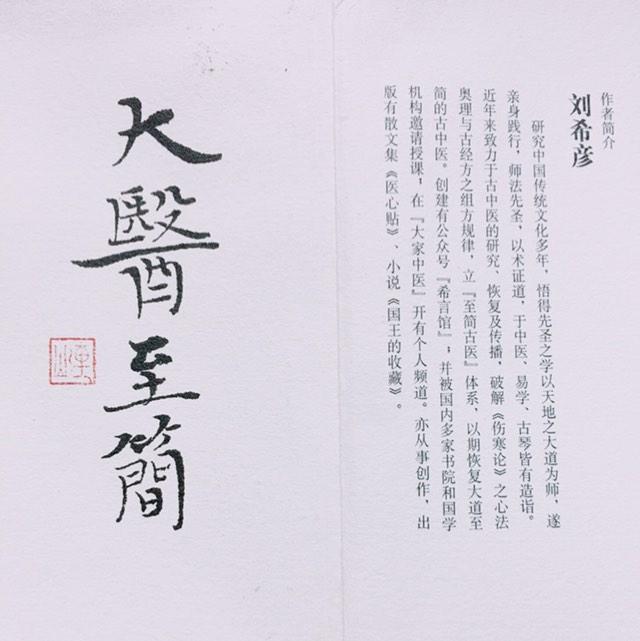 作者简介
刘希彦
研究中国传统文化多年，悟得先圣之学以天地之大道为师，遂
亲身践行，师法先圣，以术证道，于中医、易学、古琴皆有造诣。
近年来致力于古中医的研究、恢复及传播，破解《伤寒论》之心法
奥理与古经方之组方规律，立『至简古医』体系，以期恢复大道至
简的古中医。创建有公众号『希言馆』；并被国内多家书院和国学
机构邀请授课，在『大家中医』开有个人频道。亦从事创作，出
版有散文集《医心贴》、小说《国王的收藏》。
大醫至簡